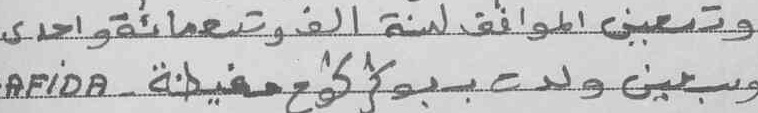 وتسعين الموافق لسنة الف وتسعمائة واحدى
وسبعين ولدت ببوكركوح حفيظة - AFIDA